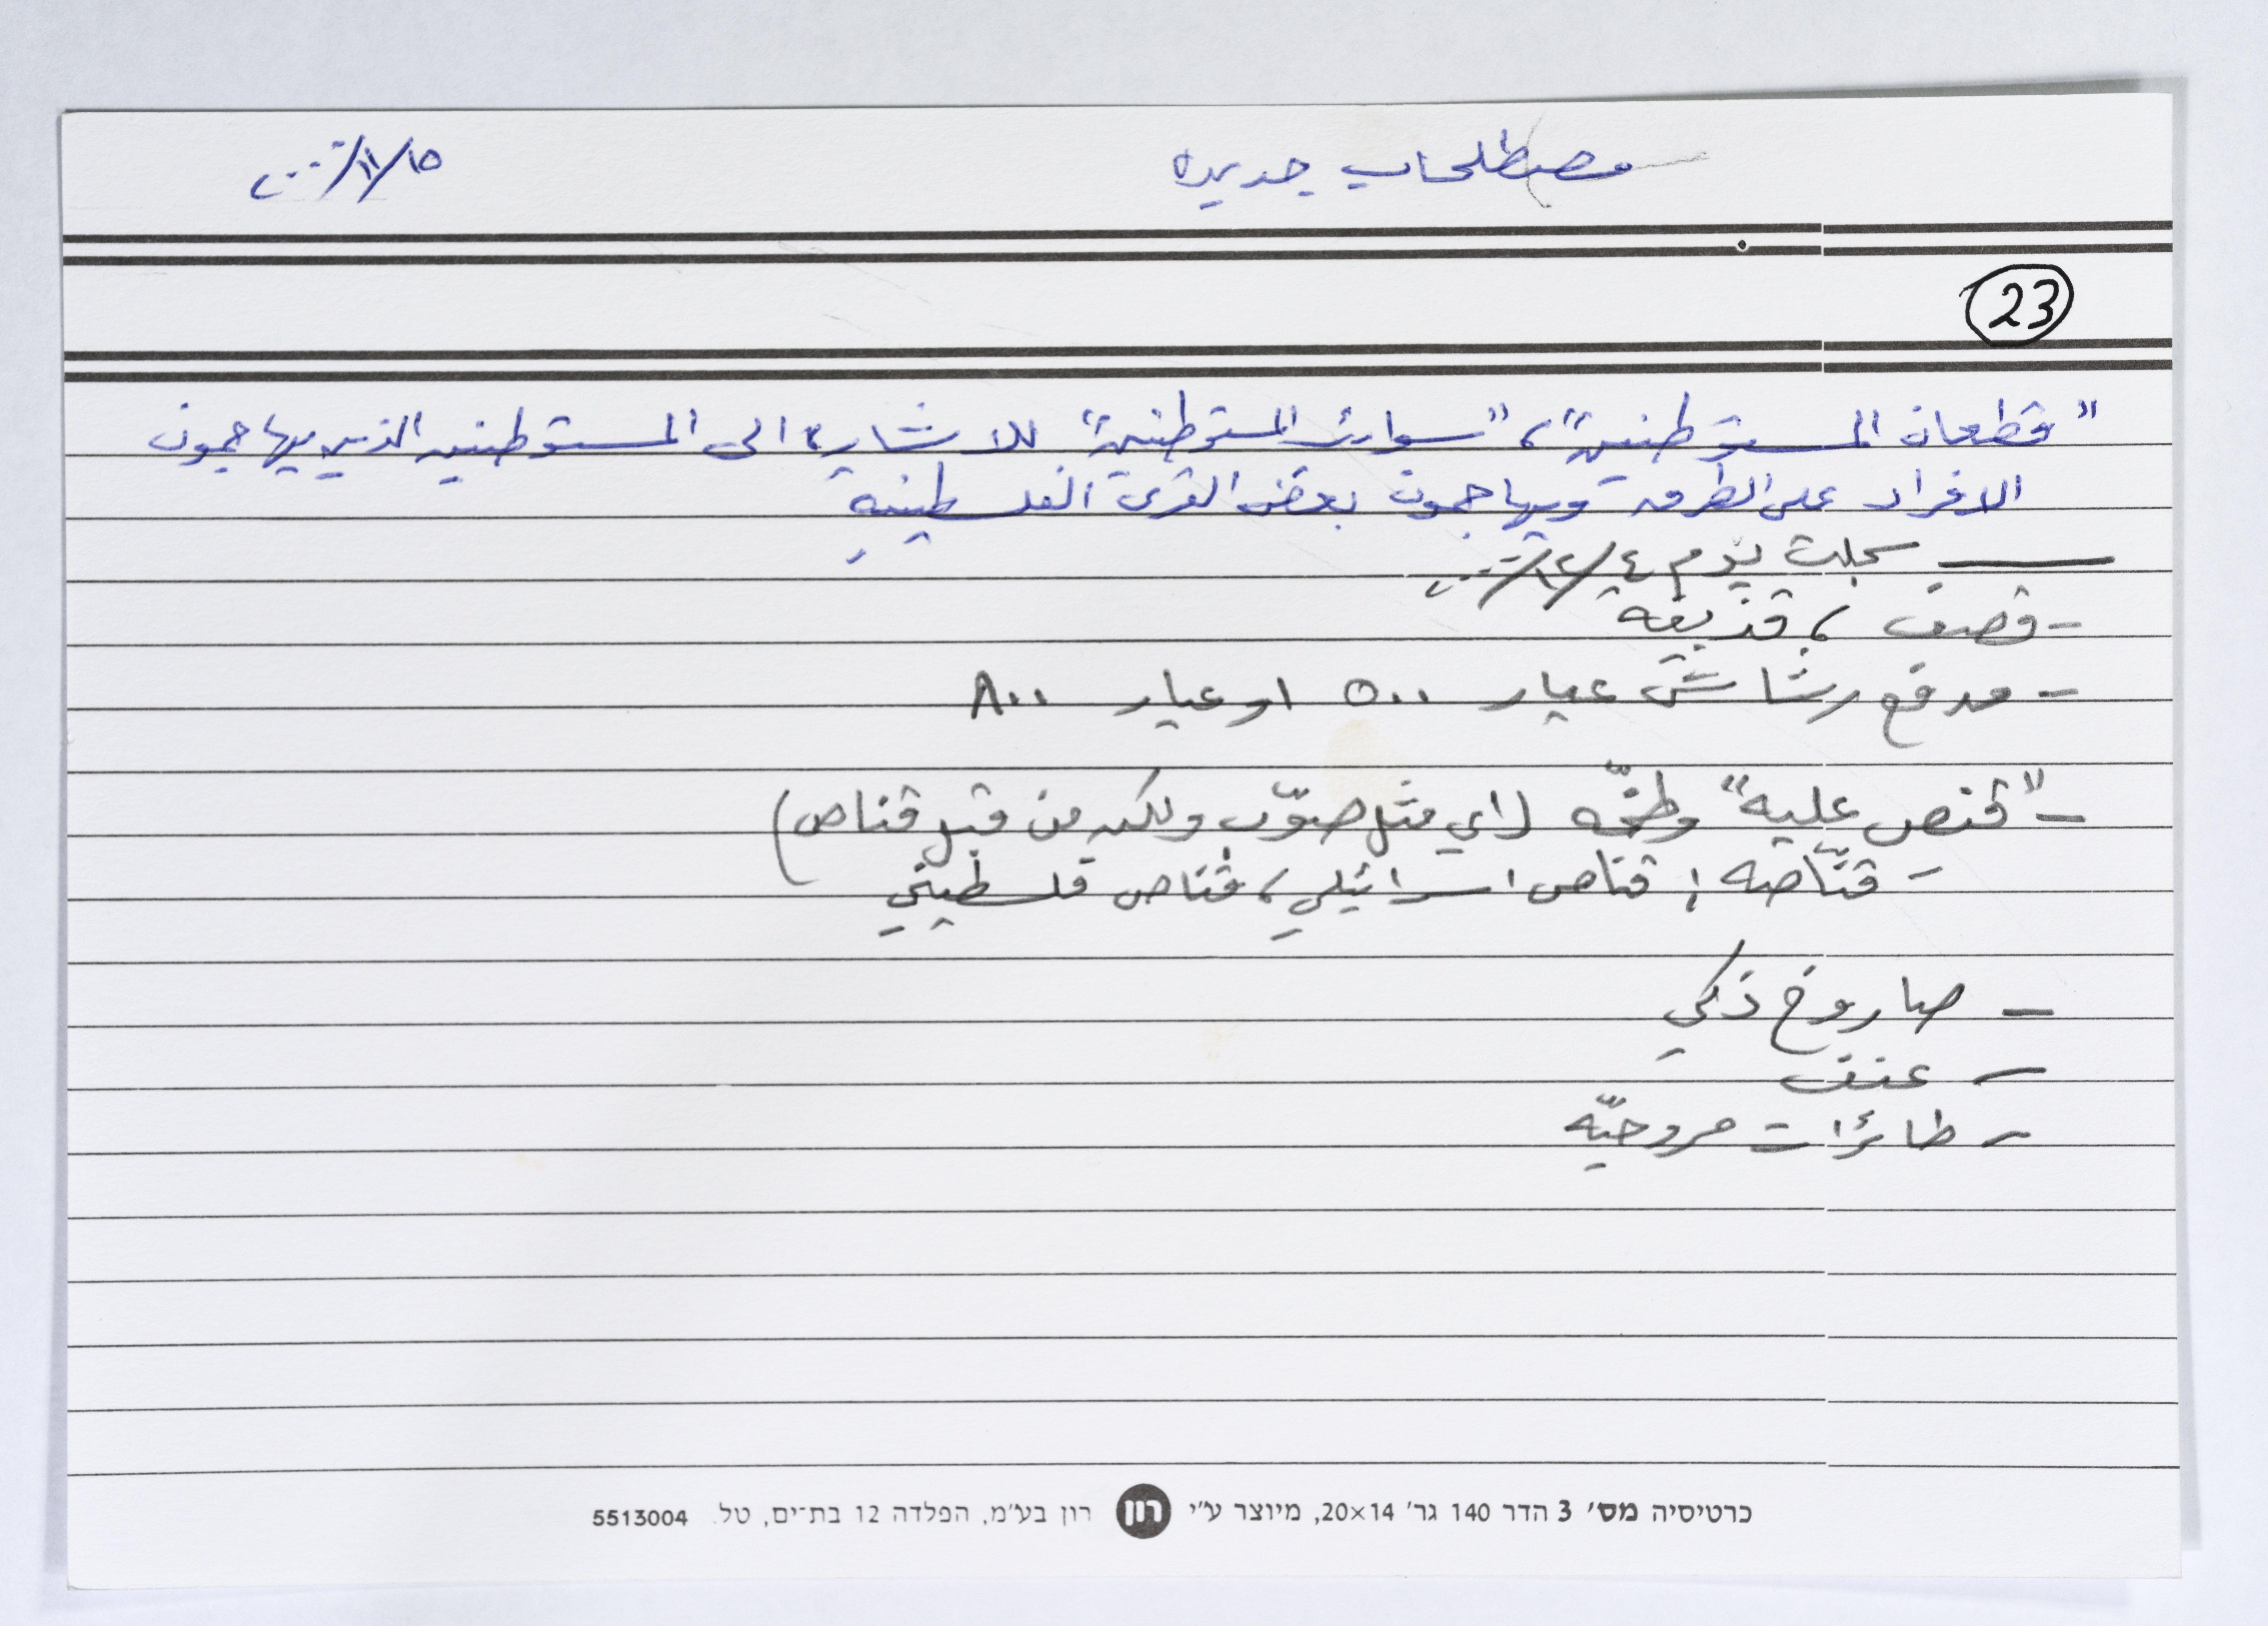 مصطلحات جديده
١٥/١١/٢٠٠٠
23
"قطعان المستوطنين"، "سوائب المستوطنين" للاشاره الى المستوطنين الذين يهاجمون
الافراد على الطرق ويهاجمون بعض القرى الفلسطينيه
سجلت يوم ٤/١٢/٢٠٠٠
- قصف، قذيفه
- مدفع رشاش عيار ٥٠٠ او عيار ٨٠٠
- "قنص عليه" وطخّه (اي مثل صوّب ولكن من قبل قناص)
- قنّاصه: قناص اسرائيلي، قناص فلسطيني
- صاروخ ذكي
- عنف
- طائرات مروحيّه
כרטיסיה מס׳ 3 הדר 140 גר׳ 20×14, מיוצר ע״י רון רון בע״מ, הפלדה 12 בת־ים, טל. 5513004